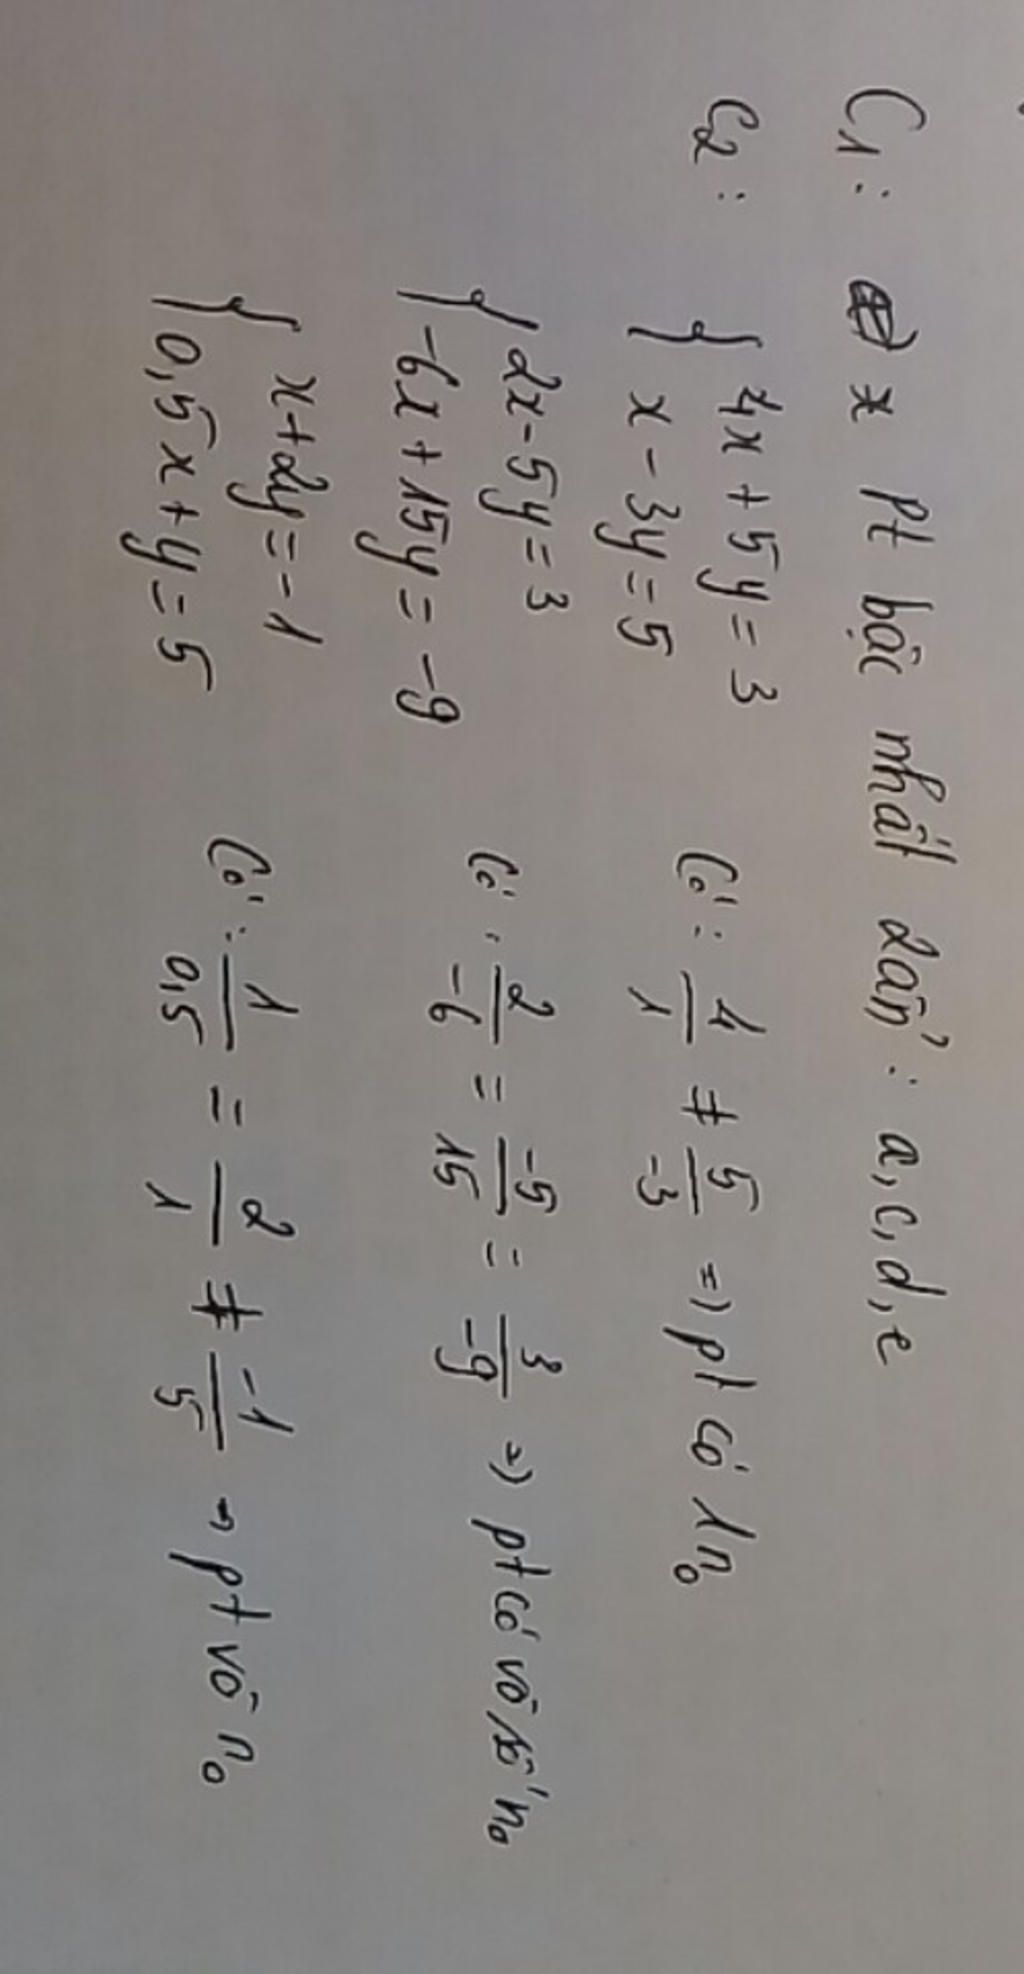 C1: * pt bậc nhất 2 ẩn: a, c, d, e
C2: { 4x + 5y = 3
x - 3y = 5
Có: 4/1 ≠ 5/-3 => pt có 1 no
{ 2x - 5y = 3
-6x + 15y = -9
Có: 2/-6 = -5/15 = 3/-9 => pt có vô số no
{ x + 2y = -1
0,5x + y = 5
Có: 1/0,5 = 2/1 ≠ -1/5 => pt vô no